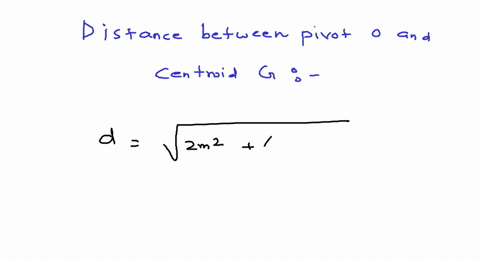 Distance between pivot O and
Centroid G :-
d = √2m² + (